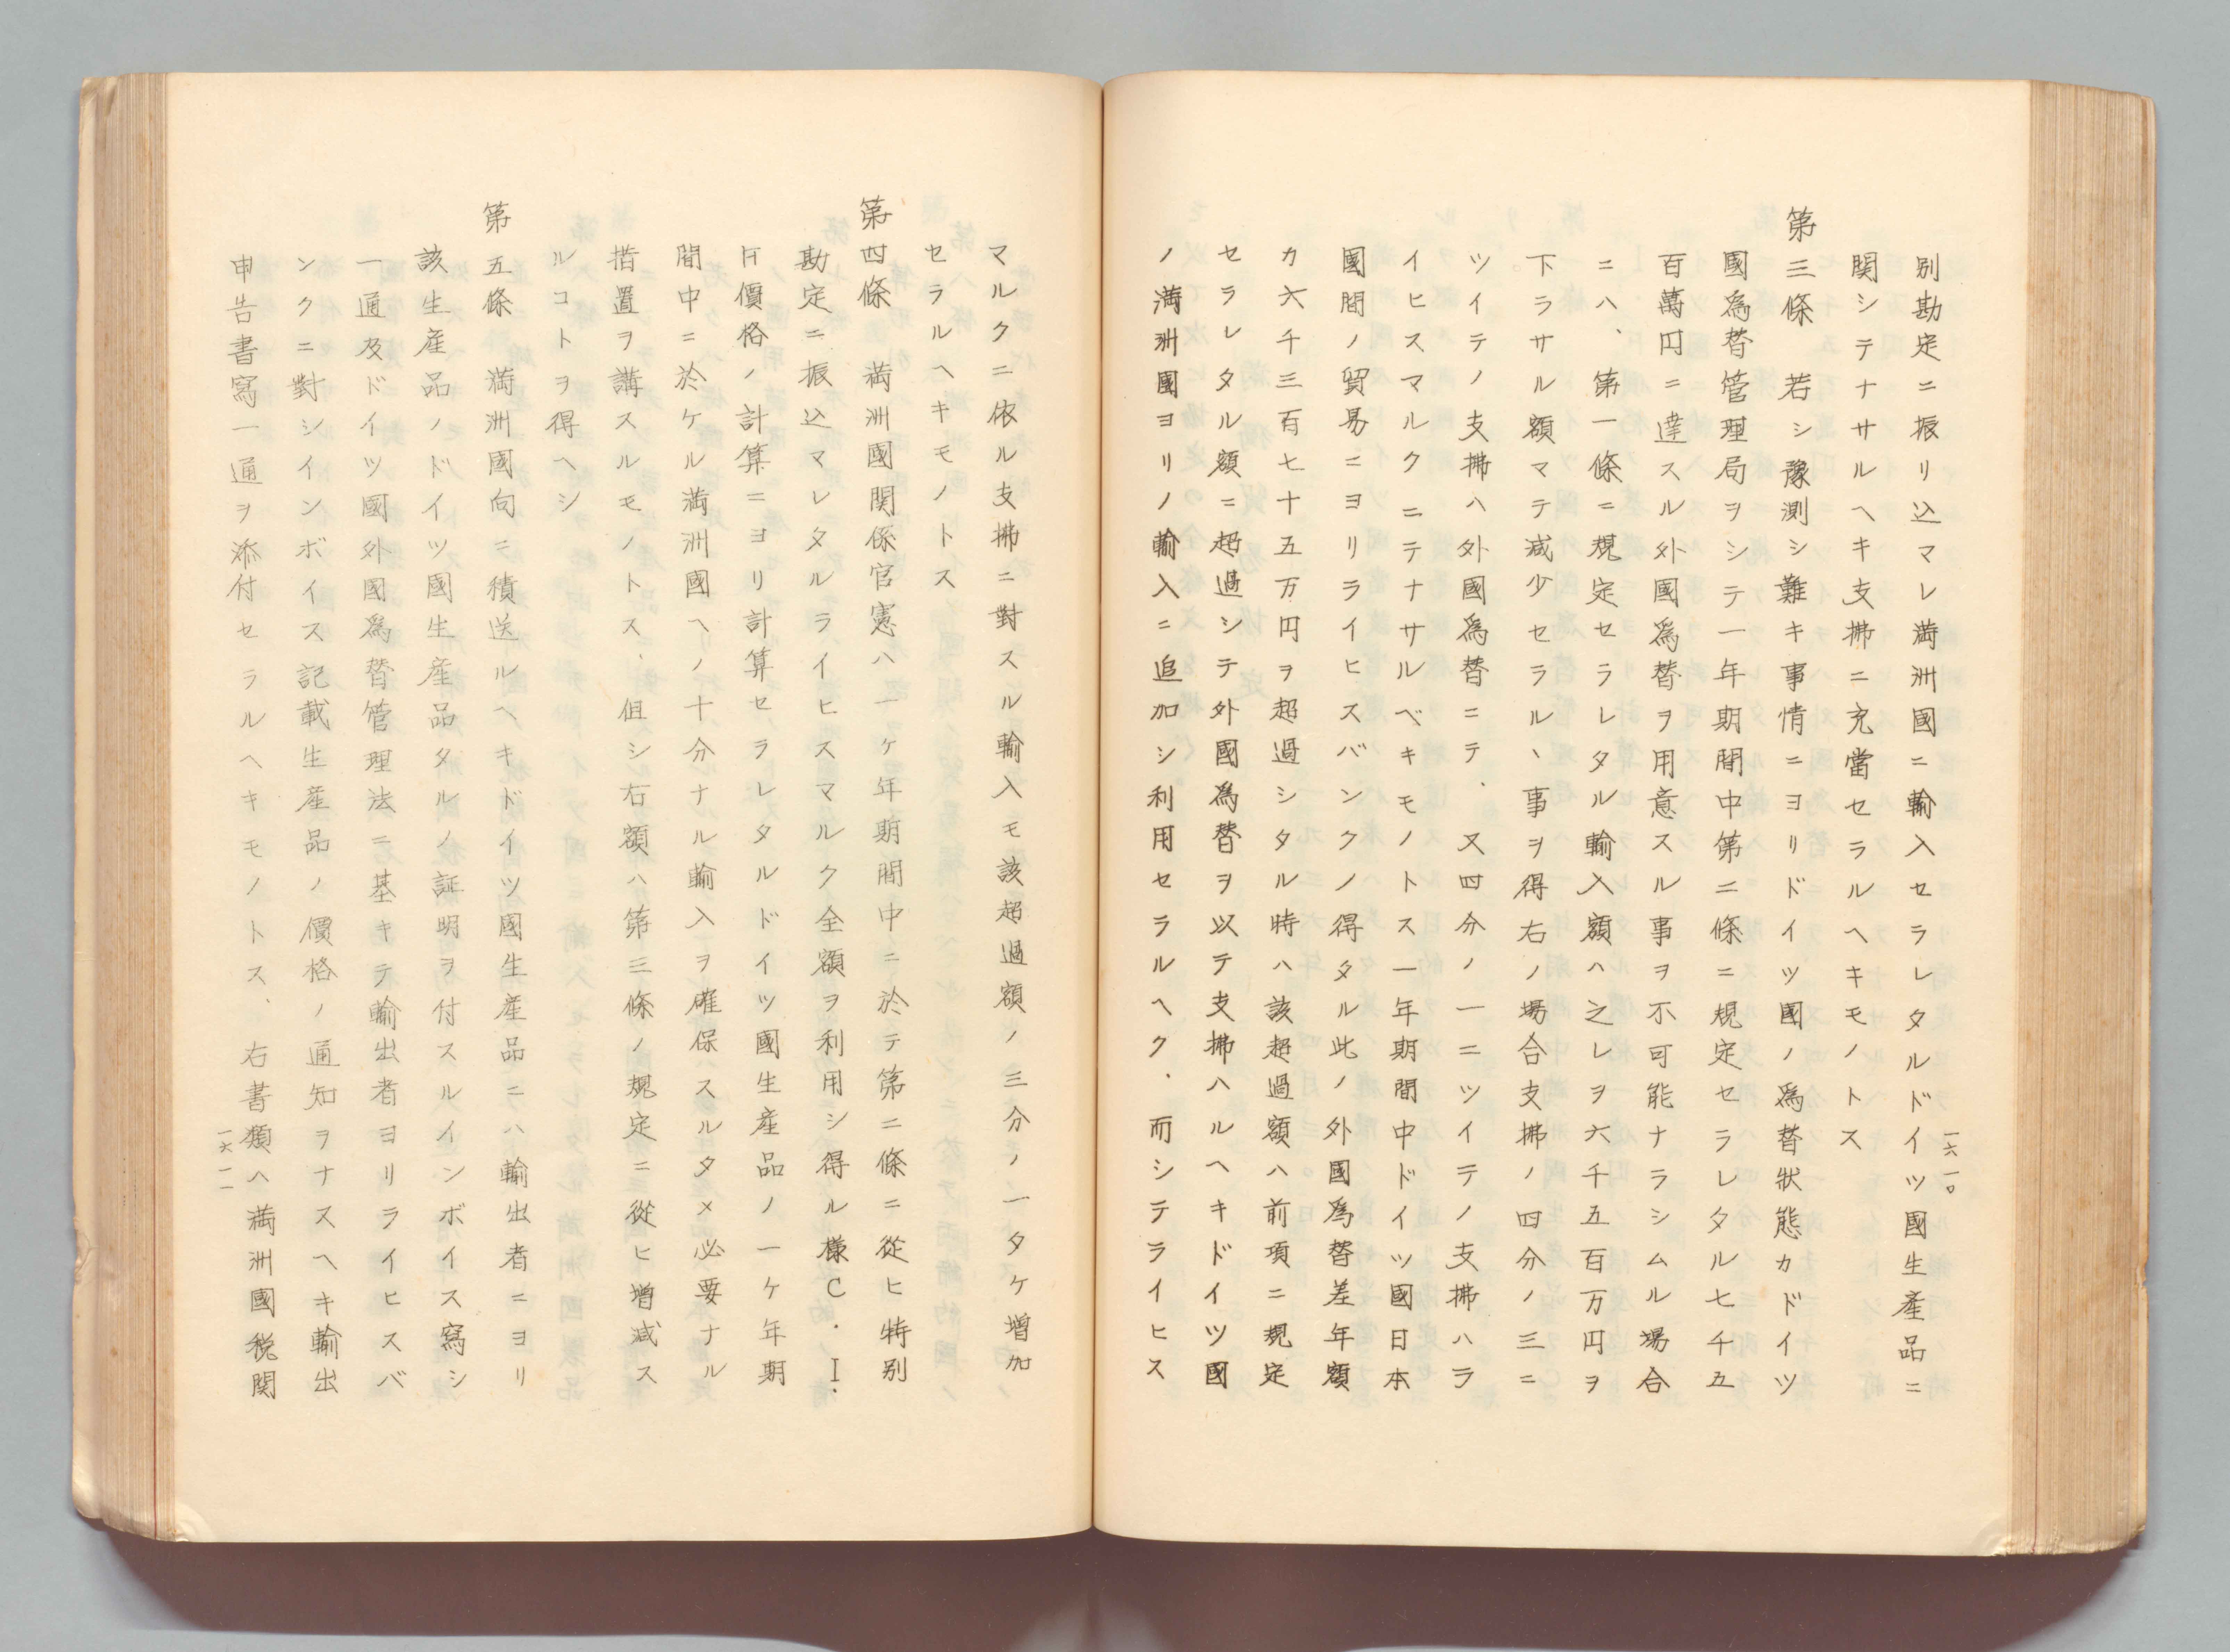 別勘定ニ振リ込マレ満洲國ニ輸入セラレタルドイツ國生産品ニ
関シテナサルヘキ支拂ニ充當セラルヘキモノトス
第三條　若シ豫測シ難キ事情ニヨリドイツ國ノ為替狀態カドイツ
國為替管理局ヲシテ一年期間中第二條ニ規定セラレタル七千五
百萬円ニ達スル外國為替ヲ用意スル事ヲ不可能ナラシムル場合
ニハ、第一條ニ規定セラレタル輸入額ハ之レヲ六千五百万円ヲ
下ラサル額マテ減少セラルヽ事ヲ得右ノ場合支拂ノ四分ノ三ニ
ツイテノ支拂ハ外國為替ニテ、又四分ノ一ニツイテノ支拂ハラ
イヒスマルクニテナサルベキモノトス一年期間中ドイツ國日本
國間ノ貿易ニヨリライヒスバンクノ得タル此ノ外國為替差年額
カ六千三百七十五万円ヲ超過シタル時ハ該超過額ハ前項ニ規定
セラレタル額ニ超過シテ外國為替ヲ以テ支拂ハルヘキドイツ國
ノ満洲國ヨリノ輸入ニ追加シ利用セラルヘク、而シテライヒス
一六一〇
マルクニ依ル支拂ニ對スル輸入モ該超過額ノ三分ノ一タケ増加
セラルヘキモノトス
第四條　満洲國関係官憲ハ一ケ年期間中ニ於テ第二條ニ從ヒ特別
勘定ニ振込マレタルライヒスマルク全額ヲ利用シ得ル様C.I.
F價格ノ計算ニヨリ計算セラレタルドイツ國生産品ノ一ケ年期
間中ニ於ケル満洲國ヘノ十分ナル輸入ヲ確保スルタメ必要ナル
措置ヲ講スルモノトス、但シ右額ハ第三條ノ規定ニ從ヒ増減ス
ルコトヲ得ヘシ
第五條　満洲國向ニ積送ルヘキドイツ國生産品ニハ輸出者ニヨリ
該生産品ノドイツ國生産品タルノ証明ヲ付スルインボイス寫シ
一通及ドイツ國外國為替管理法ニ基キテ輸出者ヨリライヒスバ
ンクニ對シインボイス記載生産品ノ價格ノ通知ヲナスヘキ輸出
申告書寫一通ヲ添付セラルヘキモノトス、右書類ハ満洲國税関
一六一一